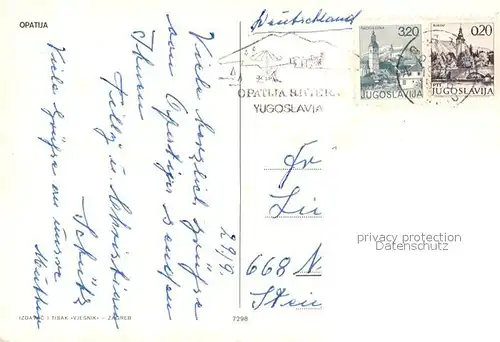 OPATIJA
Deutschland
3,20
JUGOSLAVIJA
0,20
PTT JUGOSLAVIJA
OPATIJA RIVIERA
YUGOSLAVIA
Viele herzlich Grüße
von Opatija senden
Ihnen
Fritz u. Christine
Schütz
Viele Grüße an unsre
Mutter
29/9.
Fr
668 N
Stein
privacy protection
Datenschutz
IZDAVAČ I TISAK «VJESNIK» – ZAGREB
7298